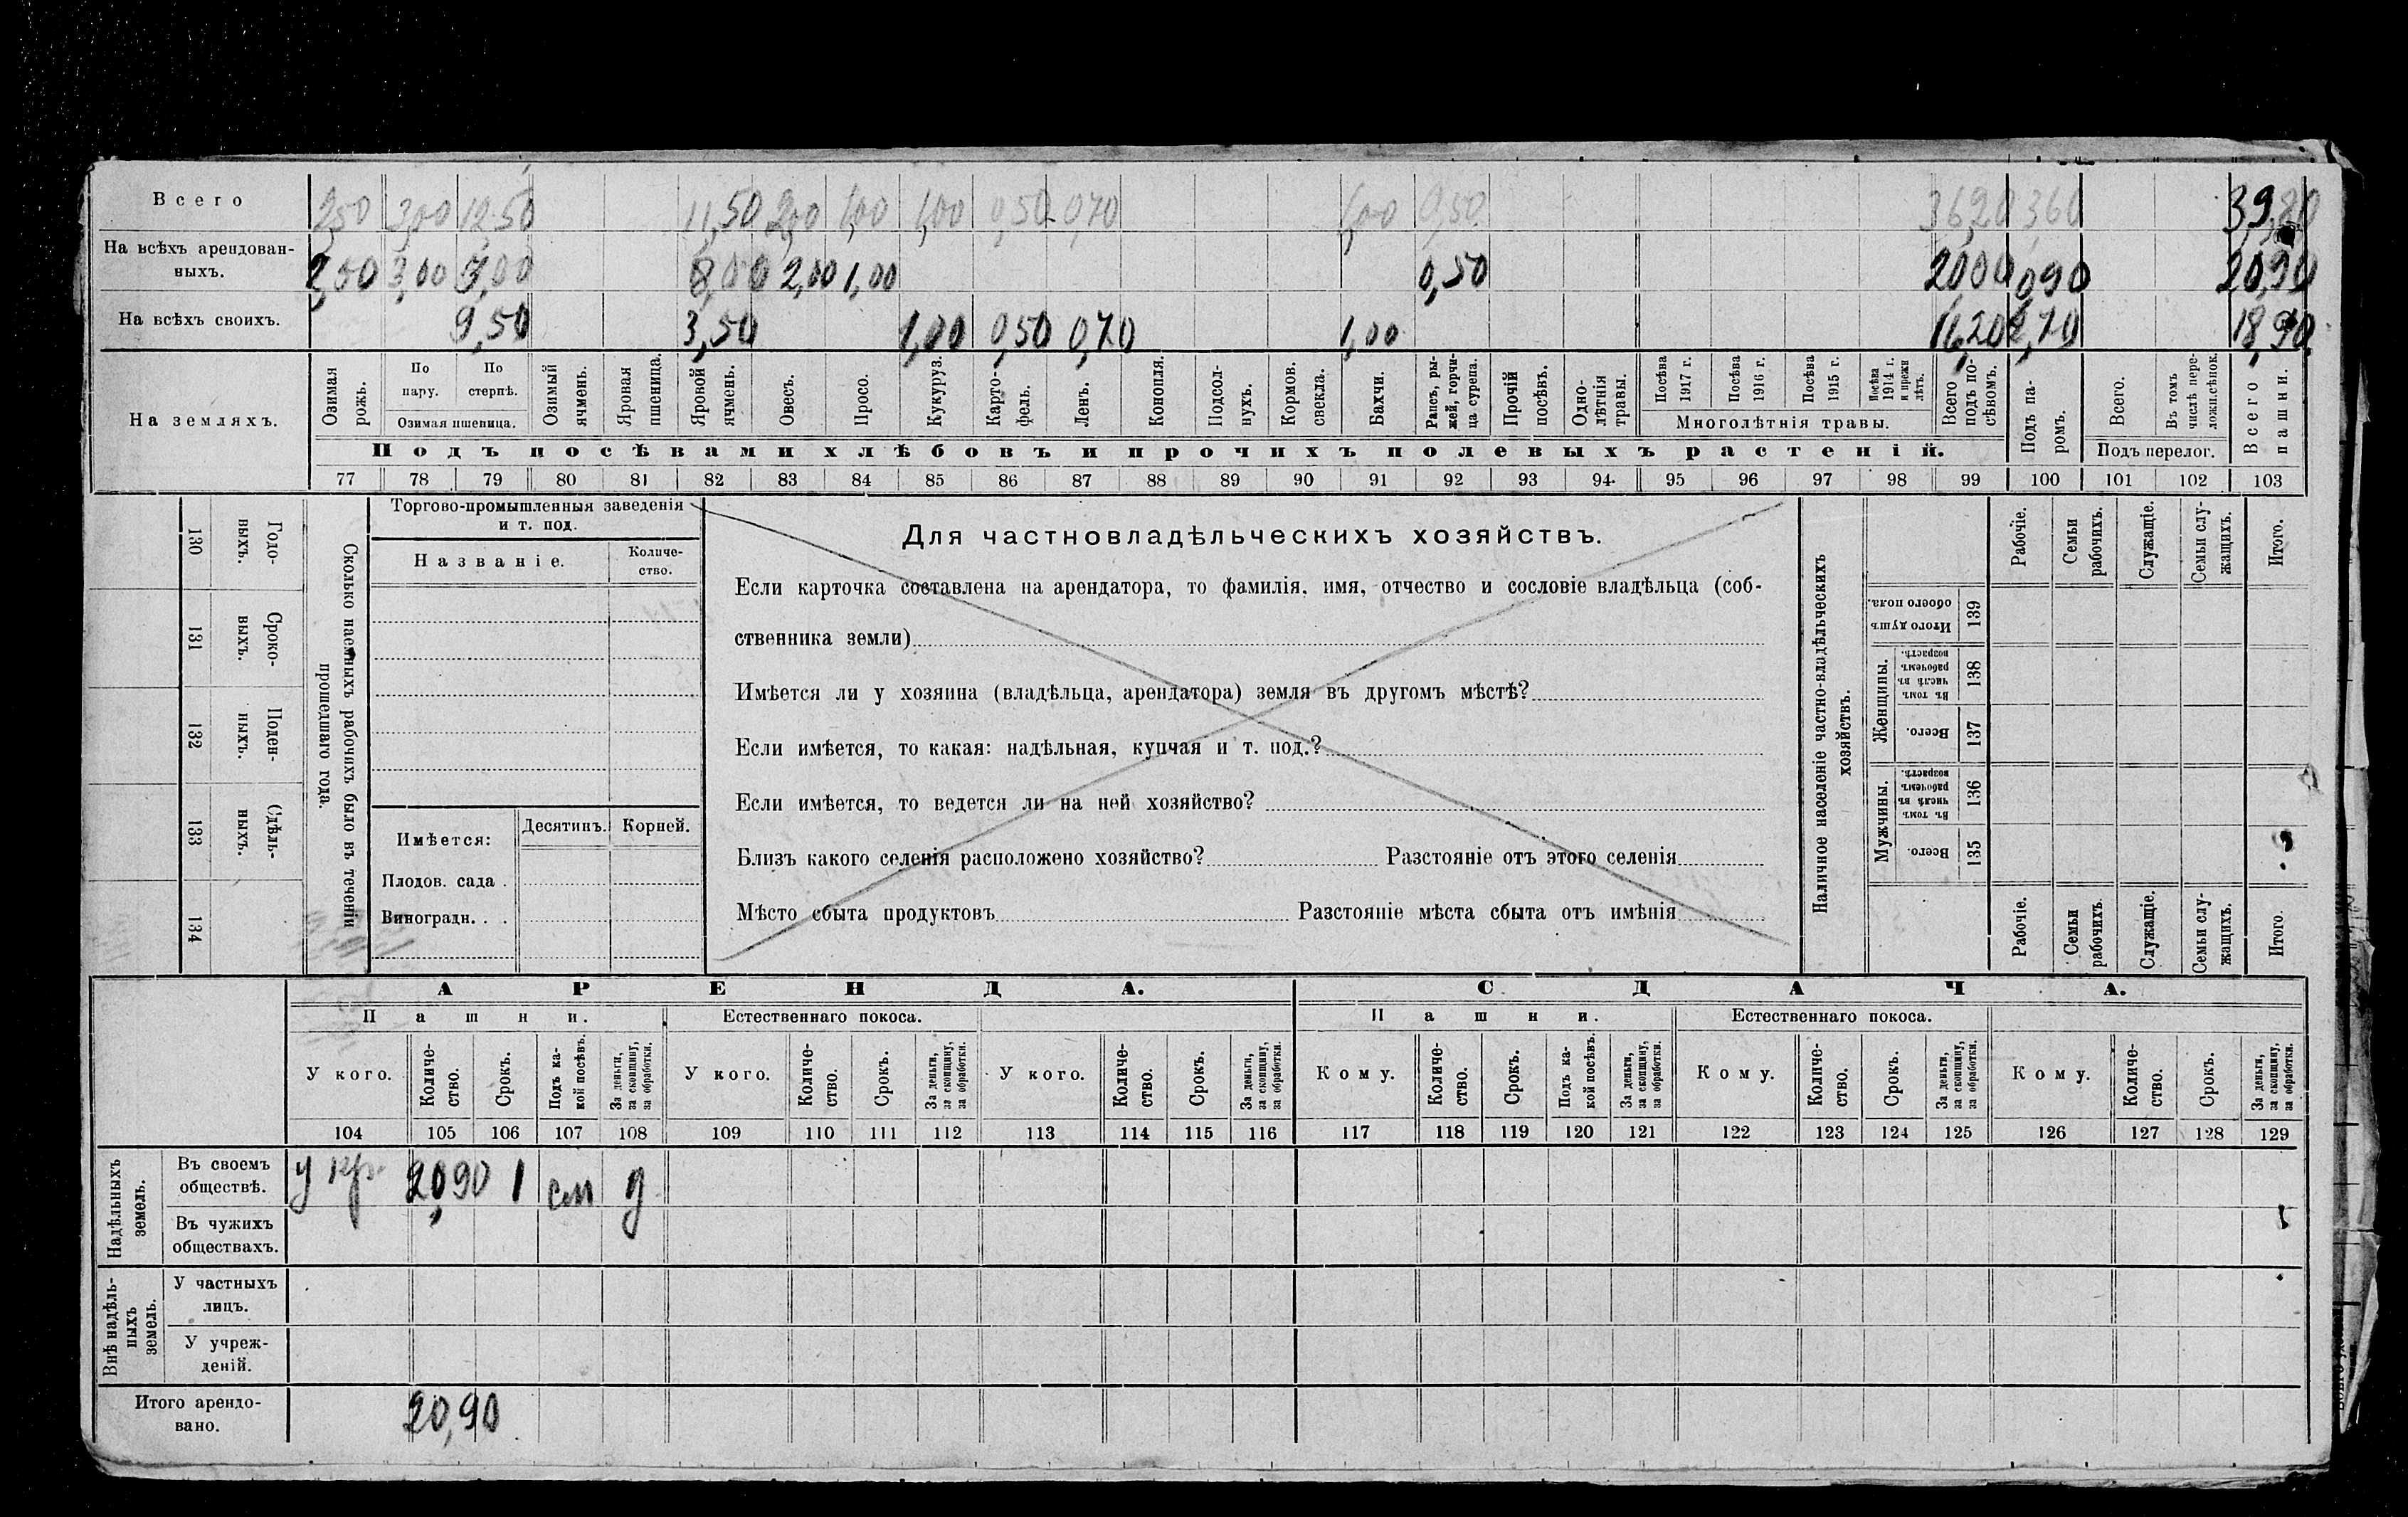 Всего 2,50 3,00 12,50 11,50 2,00 1,00 1,00 0,50 0,70 1,00 0,50 36,20 3,60 39,80
На всѣхъ арендован-
ныхъ. 2,50 3,00 3,00 8,00 2,00 1,00 0,50 20,00 0,90 20,90
На всѣхъ своихъ. 9,50 3,50 1,00 0,50 0,70 1,00 16,20 2,70 18,90
На земляхъ.
Озимая рожь.
По пару.
По стернѣ.
Озимая пшеница.
Озимый ячмень.
Яровая пшеница.
Яровой ячмень.
Овесъ.
Просо.
Кукуруз.
Карто-
фель.
Ленъ.
Конопля.
Подсол-
нухъ.
Кормов.
свекла.
Бахчи.
Рапсъ, ры-
жей, горчи-
ца сурепа.
Прочій
посѣвъ.
Одно-
лѣтнія
травы.
Посѣва
1917 г.
Посѣва
1916 г.
Посѣва
1915 г.
Посѣва
1914 г.
и прежн
лѣтъ.
Многолѣтнія травы.
Всего
подъ по-
сѣвомъ.
Подъ па-
ромъ.
Всего.
Въ томъ
числѣ пере-
ложн.сѣнок.
Подъ перелог.
Всего
пашни.
Подъ посѣвами хлѣбовъ и прочихъ полевыхъ растеній.
77 78 79 80 81 82 83 84 85 86 87 88 89 90 91 92 93 94 95 96 97 98 99 100 101 102 103
Годо-
выхъ.
130
Сроко-
выхъ.
131
Поден-
ныхъ.
132
Сдѣль-
ныхъ.
133
134
Сколько наемныхъ рабочихъ было въ теченіи
прошедшаго года.
Торгово-промышленныя заведенія
и т. под.
Названіе.
Количе-
ство.
Имѣется:
Десятинъ.
Корней.
Плодов. сада .
Виноградн. . .
Для частновладѣльческихъ хозяйствъ.
Если карточка составлена на арендатора, то фамилія, имя, отчество и сословіе владѣльца (соб-
ственника земли)
Имѣется ли у хозяина (владѣльца, арендатора) земля въ другомъ мѣстѣ?
Если имѣется, то какая: надѣльная, купчая и т. под.?
Если имѣется, то ведется ли на ней хозяйство?
Близъ какого селенія расположено хозяйство? Разстояніе отъ этого селенія
Мѣсто сбыта продуктовъ Разстояніе мѣста сбыта отъ имѣнія
Наличное населеніе частно-владѣльческихъ
хозяйствъ.
Рабочіе.
Семьи
рабочихъ.
Служащіе.
Семьи слу-
жащихъ.
Итого.
Итого душъ
обоего пола.
139
Женщины.
Въ томъ
числѣ въ
рабочемъ
возрастѣ.
138
Всего.
137
Мужчины.
Въ томъ
числѣ въ
рабочемъ
возрастѣ.
136
Всего.
135
Рабочіе.
Семьи
рабочихъ.
Служащіе.
Семьи слу-
жащихъ.
Итого.
АРЕНДА. СДАЧА.
Пашни. Естественнаго покоса. Пашни. Естественнаго покоса.
У кого.
Количе-
ство.
Срокъ.
Подъ ка-
кой посѣвъ.
За деньги,
за скопщину,
за обработки.
У кого.
Количе-
ство.
Срокъ.
За деньги,
за скопщину,
за обработки.
У кого.
Количе-
ство.
Срокъ.
За деньги,
за скопщину,
за обработки.
Кому.
Количе-
ство.
Срокъ.
Подъ ка-
кой посѣвъ.
За деньги,
за скопщину,
за обработки.
Кому.
Количе-
ство.
Срокъ.
За деньги,
за скопщину,
за обработки.
Кому.
Количе-
ство.
Срокъ.
За деньги,
за скопщину,
за обработки.
104 105 106 107 108 109 110 111 112 113 114 115 116 117 118 119 120 121 122 123 124 125 126 127 128 129
Надѣльныхъ
земель.
Въ своемъ
обществѣ. у кр. 20,90 1 см д
Въ чужихъ
обществахъ.
Внѣ надѣль-
ныхъ
земель.
У частныхъ
лицъ.
У учреж-
деній.
Итого арендо-
вано. 20,90